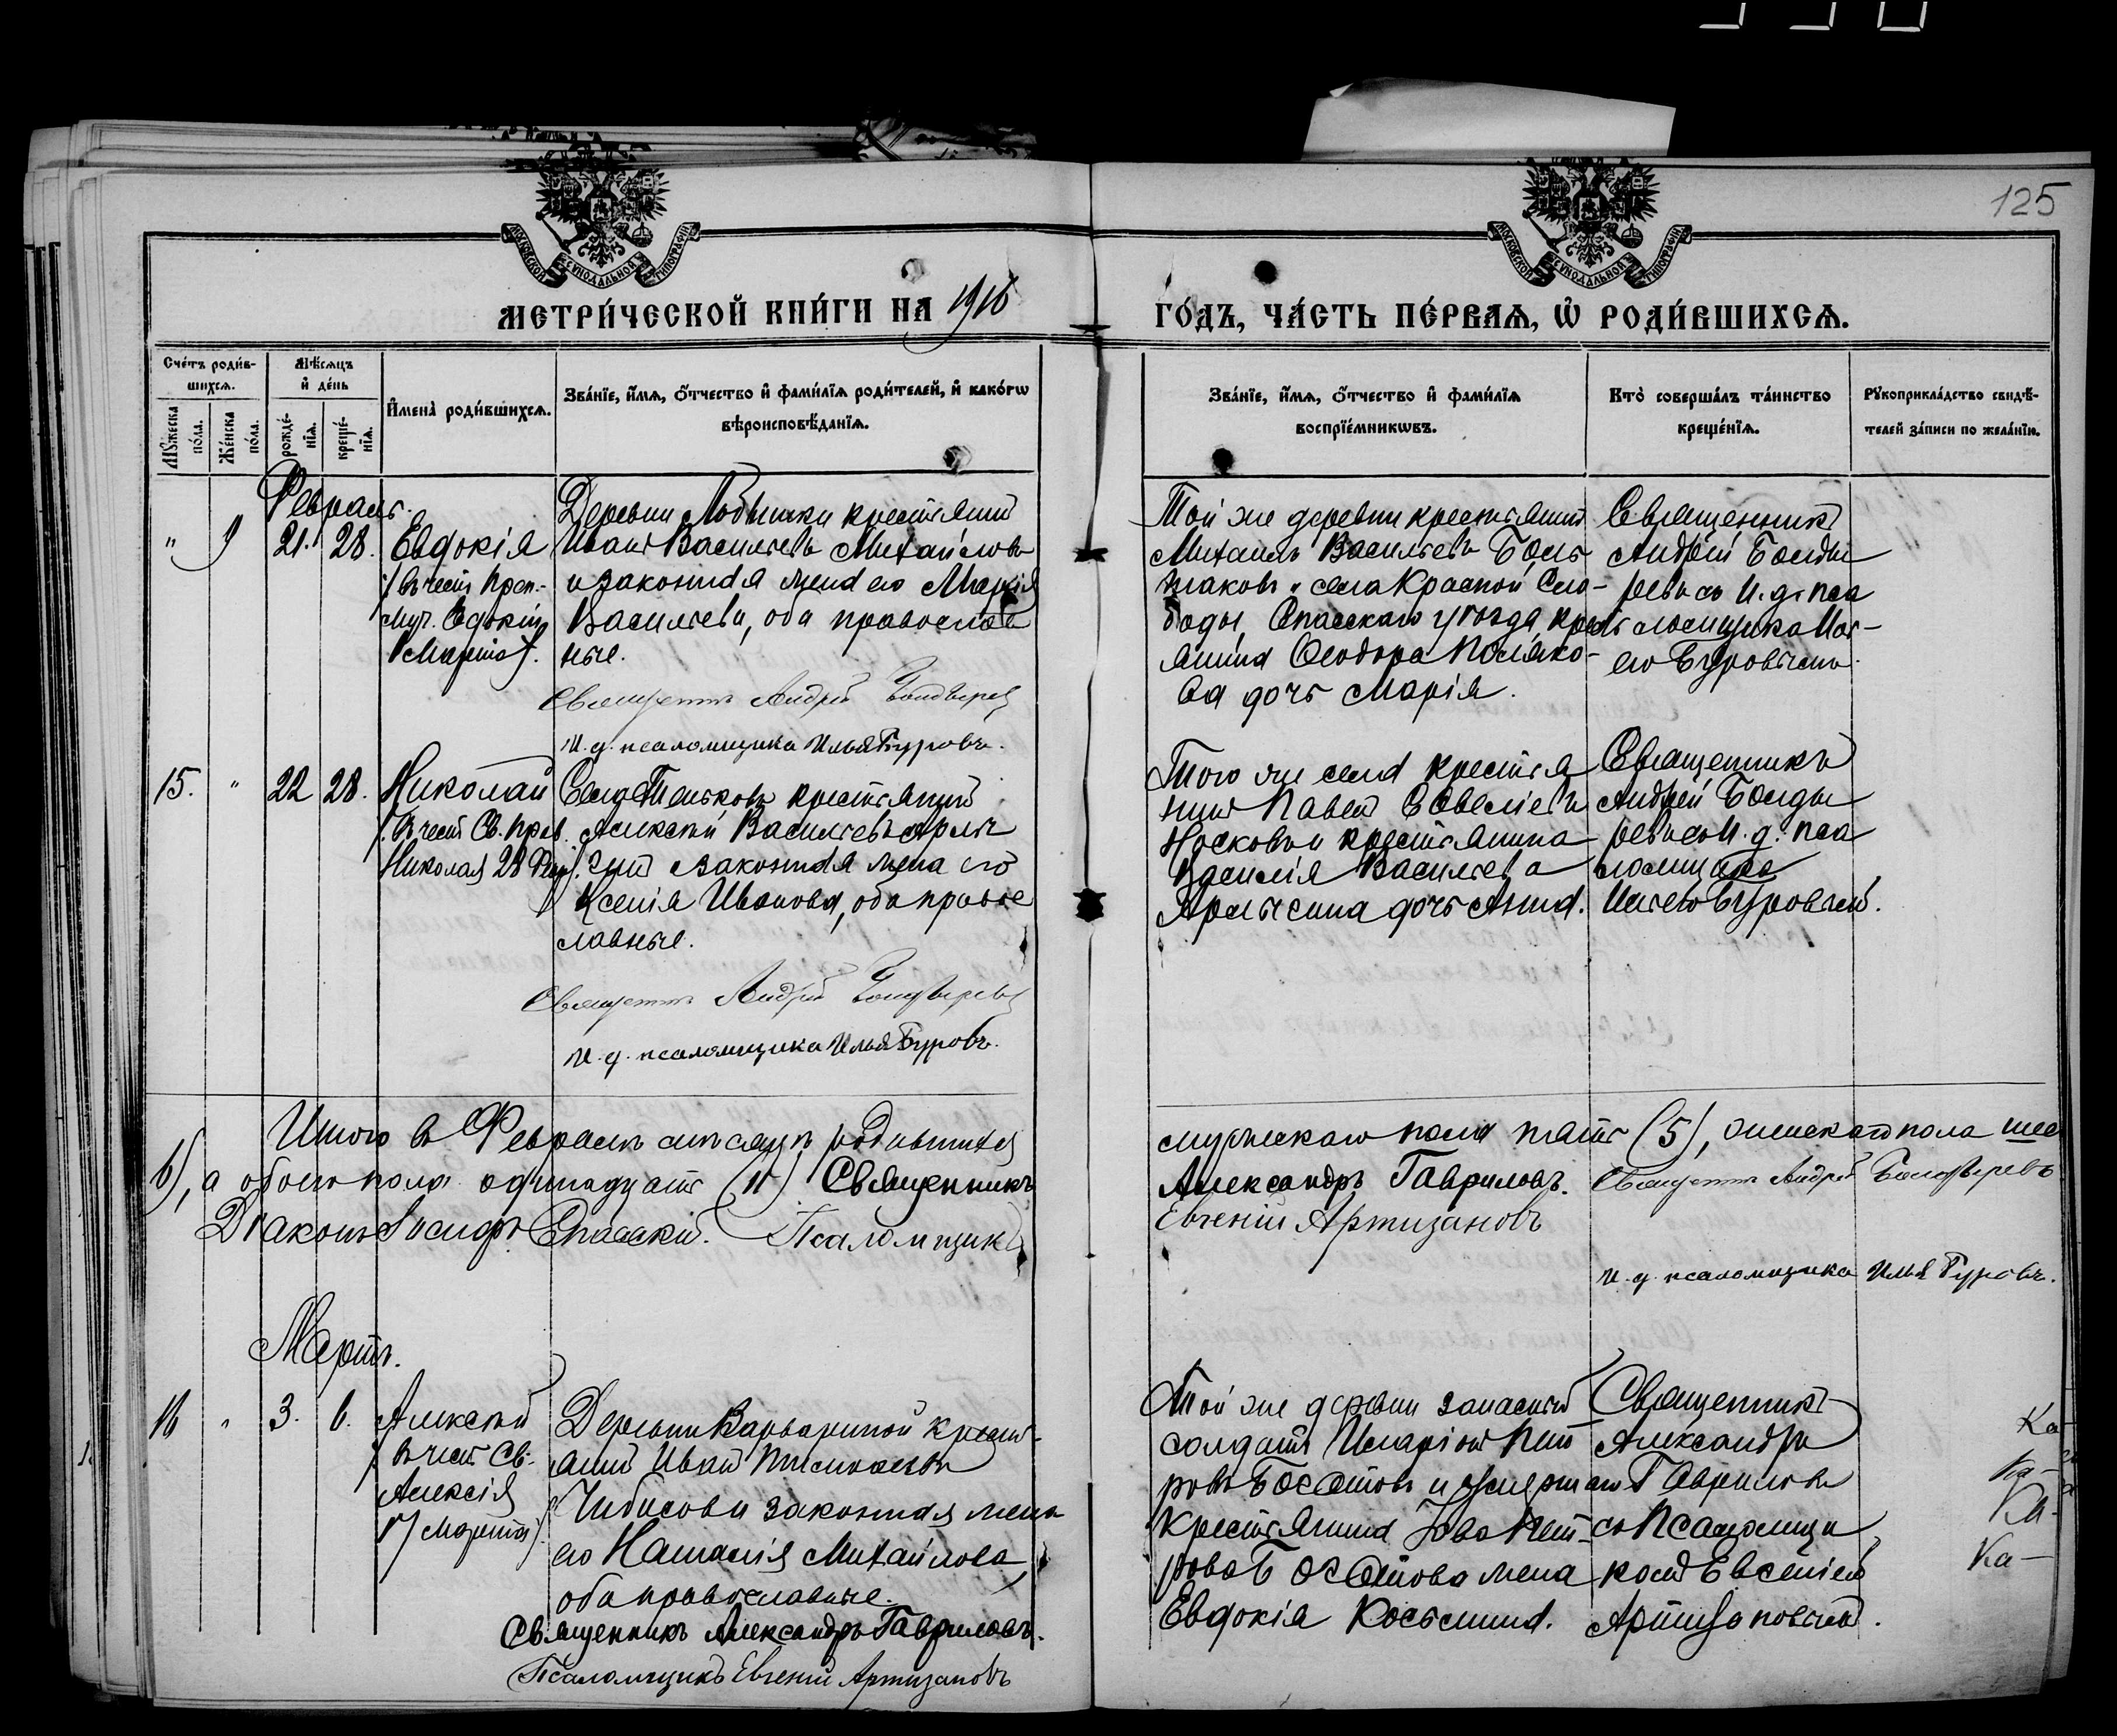 125
МОСКОВСКОЙ СѴНОДАЛЬНОЙ ТИПОГРАФІИ
МОСКОВСКОЙ СѴНОДАЛЬНОЙ ТИПОГРАФІИ
МЕТРИ́ЧЕСКОЙ КНИ́ГИ НА 1916
ГО́ДЪ, ЧА́СТЬ ПЕ́РВАѦ, Ѡ҆ РОДИ́ВШИХСѦ.
Сче́тъ роди́в-
шихсѧ.
Мꙋ́жеска по́ла.
Же́нска по́ла.
Мѣ́сѧцъ
и҆ де́нь
рожде́-
нїѧ.
креще́-
нїѧ.
И҆мена̀ роди́вшихсѧ.
Зва́нїе, и҆́мѧ, ѻ҆́тчество и҆ фами́лїѧ роди́телей, и҆ како́гѡ
вѣроисповѣ́данїѧ.
Зва́нїе, и҆́мѧ, ѻ҆́тчество и҆ фами́лїѧ
воспрїе́мникѡвъ.
Кто̀ соверша́лъ та́инство
креще́нїѧ.
Рꙋкоприкла́дство свидѣ́-
телей за́писи по жела́нїю.
Февраль.
" 9 21. 28. Евдокія
/въ честь Преп.-
муч. Евдокіи
1 марта/.
Деревни крестьянинъ
Иванъ Васильевъ Михайловъ
и законная жена его Марія
Васильева, оба православ
ные.
Священникъ Андрей Болдыревъ
И. д. псаломщика Илья Буровъ.
Той же деревни крестьянинъ
Михаилъ Васильевъ
и села Красной Сло-
боды, Спасскаго уѣзда, крест
янина Ѳеодора Поляко-
ва дочь Марія.
Священникъ
Андрей Болды
ревъ съ И. д. пса
ломщика Иль-
ею Буровымъ.
15. " 22 28. Николай
/въ честь Св. Прав.
Николая 28 Февр/.
Села крестьянинъ
Алексѣй Васильевъ
законная жена его
Ксенія Иванова, оба право
славные.
Священникъ Андрей Болдыревъ
И. д. псаломщика Илья Буровъ.
Того же села крестья
нинъ Павелъ Савельевъ
Носковъ и крестьянина
Василія Васильева
дочь Анна.
Священникъ
Андрей Болды
ревъ съ И. д. пса
ломщика
Ильею Буровымъ.
Итого въ Февралѣ мѣсяцѣ родившихся
мужескаго пола пять (5), женскаго пола шес
6), а обоего пола одинадцать (11) Священникъ
Александръ Гавриловъ. Священникъ Андрей Болдыревъ
Діаконъ Іосифъ Спасскій. Псаломщикъ
Евгеній Артизановъ
И. д. псаломщика Илья Буровъ.
Мартъ.
16 " 3. 6. Алексѣй
/въ честь Св.
Алексія
17 марта/.
Деревни Варвариной крестья-
нинъ Иванъ
Чибисовъ и законная жена
его Наталія Михайлова,
оба православные.
Священникъ Александръ Гавриловъ.
Псаломщикъ Евгеній Артизановъ
Той же деревни запасный
солдатъ Иларіонъ Пет
ровъ и
крестьянина Іова Пет-
рова жена
Евдокія Косьмина.
Священникъ
Александръ
Гавриловъ
съ Псаломщи
комъ Евгеніемъ
Артизановымъ.
Ка-
Ка-
Ка-
Ка-